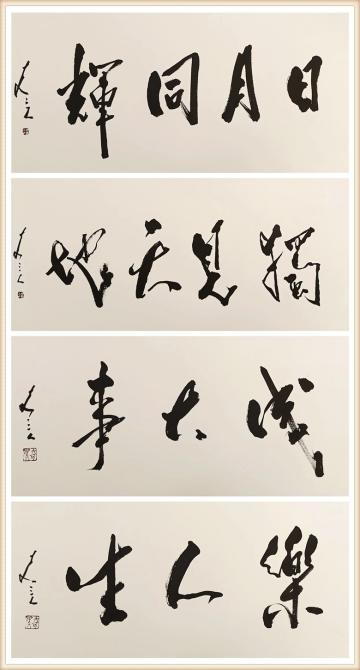 日月同輝
獨見天地
成大事
樂人生